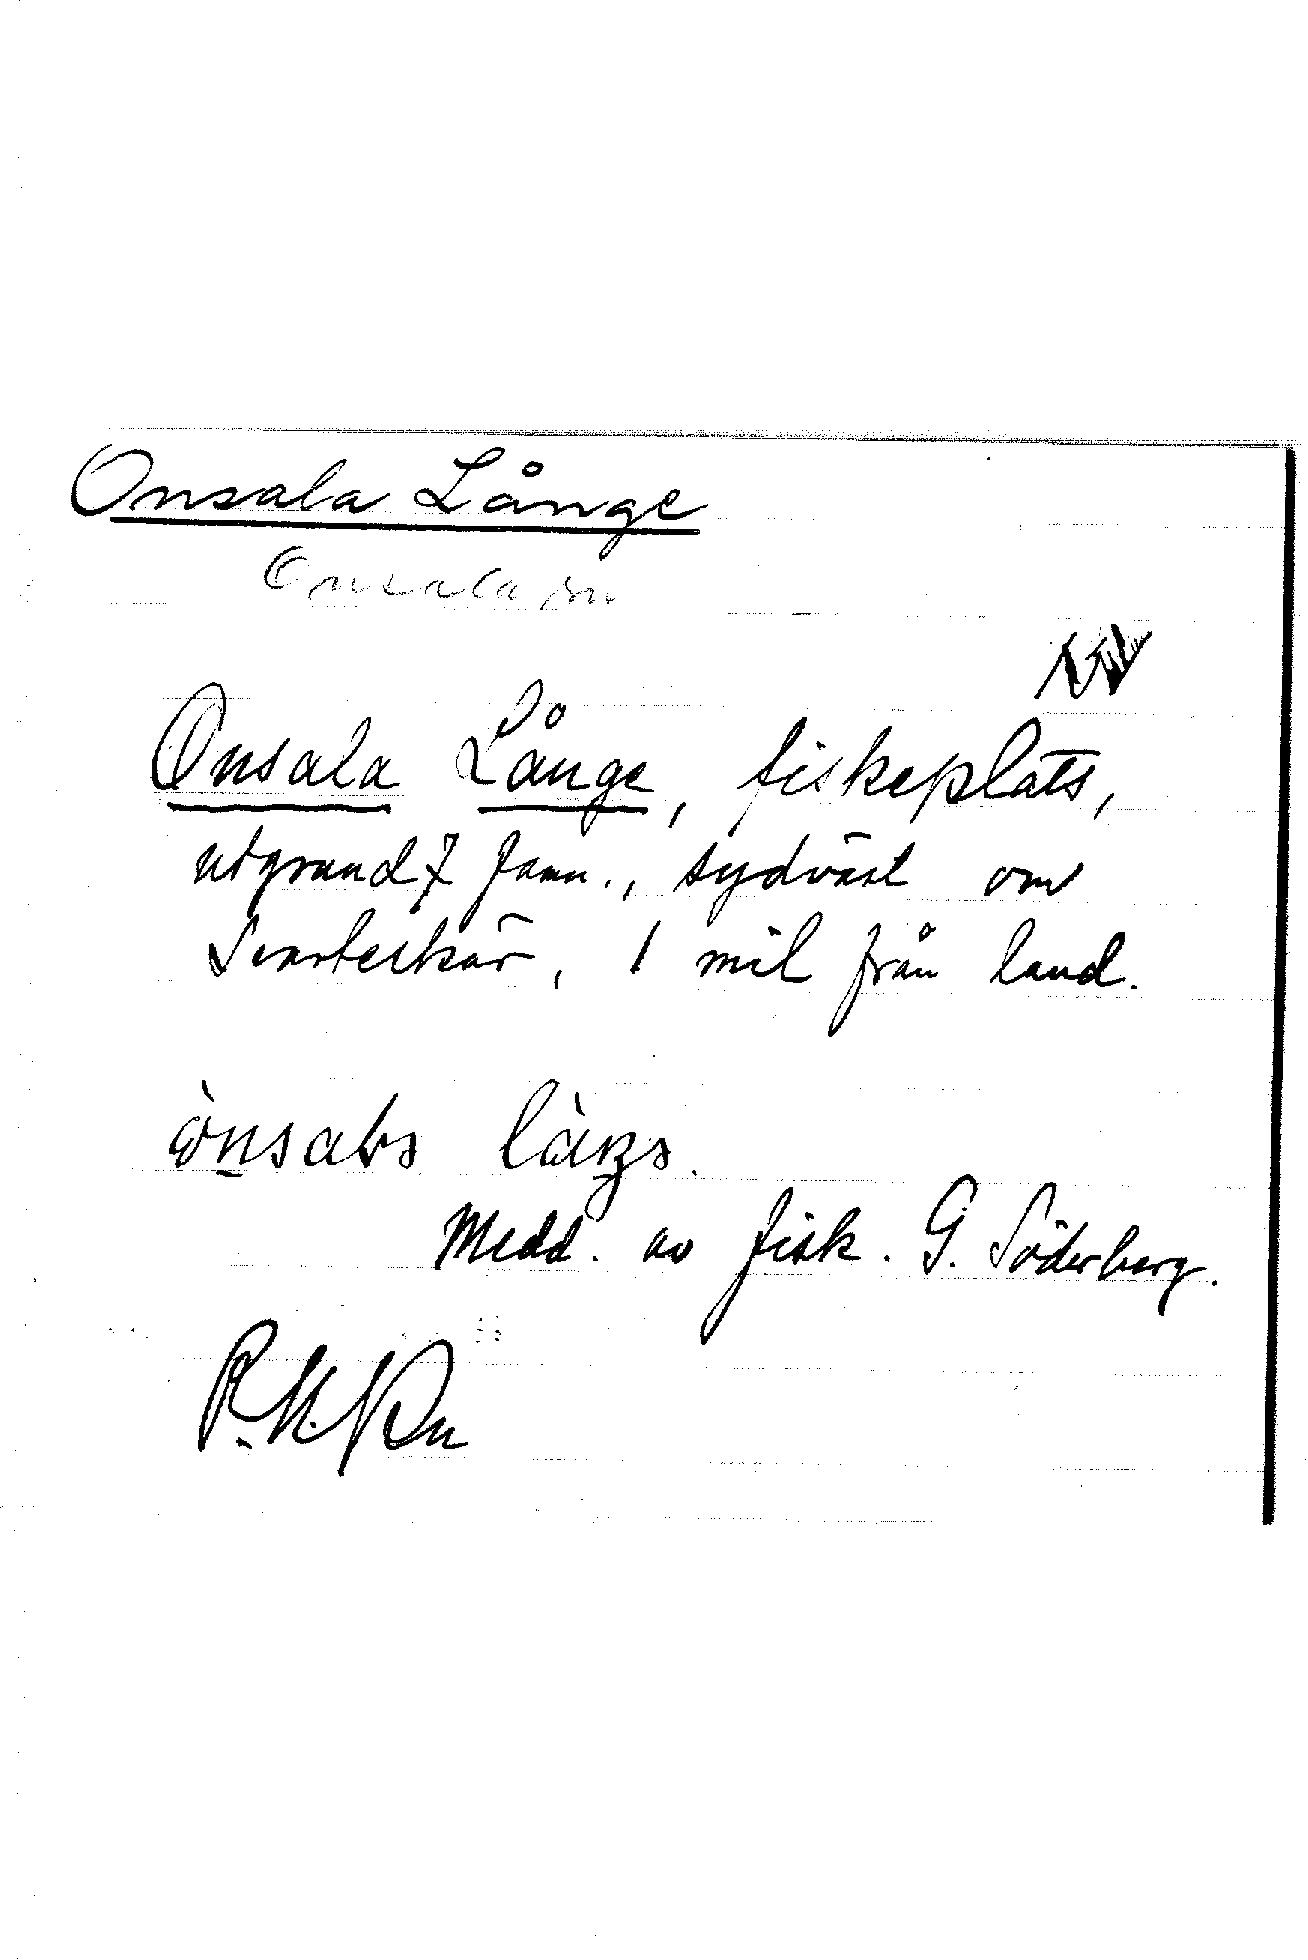 Onsala Långe
Onsala sn
Onsala Långe, fiskeplats,
utgrund 7 famn., sydväst om
Svarteskär, 1 mil från land.
Medd. av fisk. G. Söderberg.